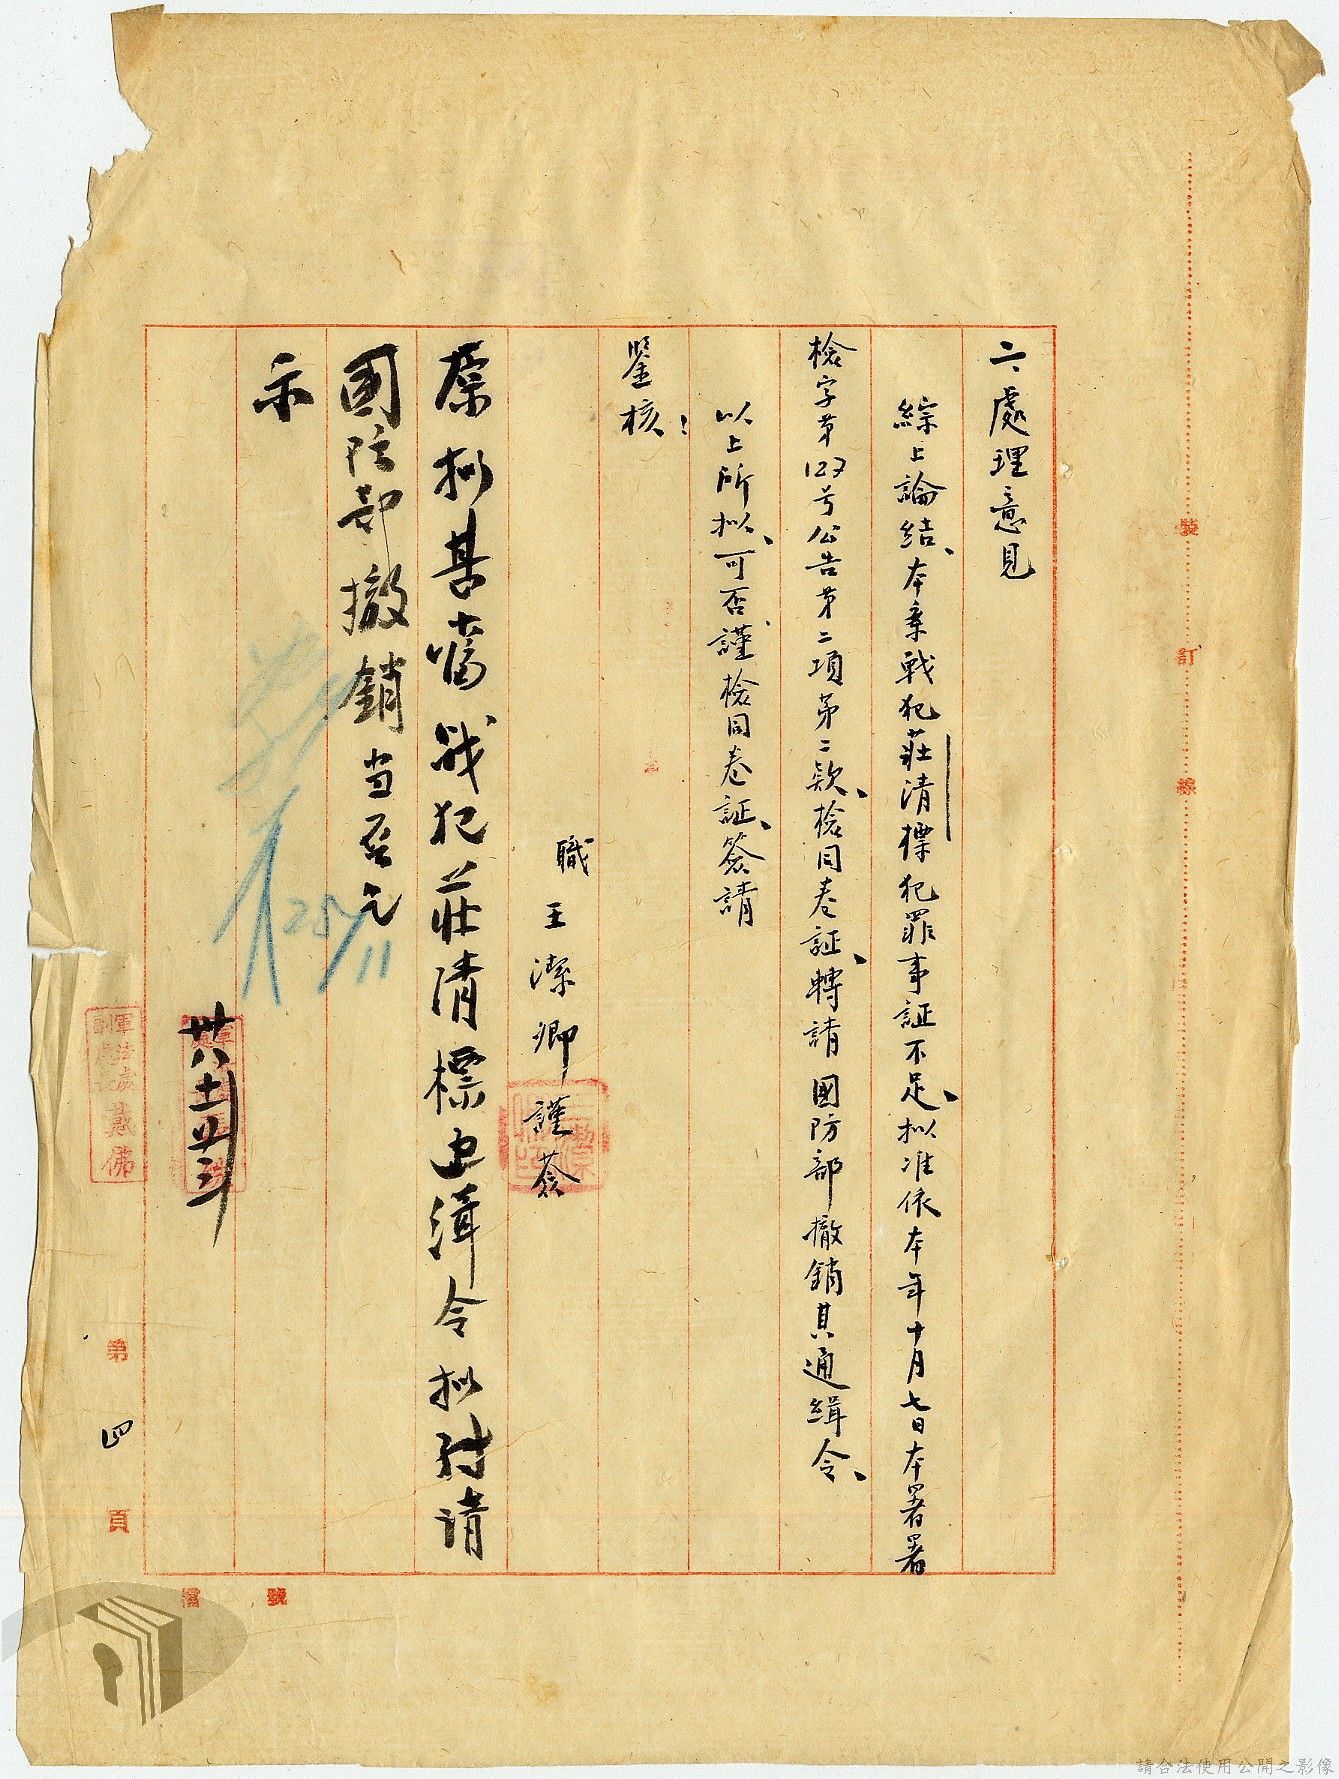 六、處理意見
綜上論結、本案戰犯莊清標犯罪事証不足、拟准依本年十月七日本署署
檢字第127号公告第二項第二款、檢同卷証、轉請國防部撤銷其通緝令、
以上所拟、可否、謹檢同卷証、簽請
鑒核！
職王潔卿謹簽
原拟甚當戰犯莊清標通緝令拟转请
國防部撤銷当否乞
示
卅八、十一、廿三
25/11
第四頁
檔號
裝訂線
請合法使用公開之影像